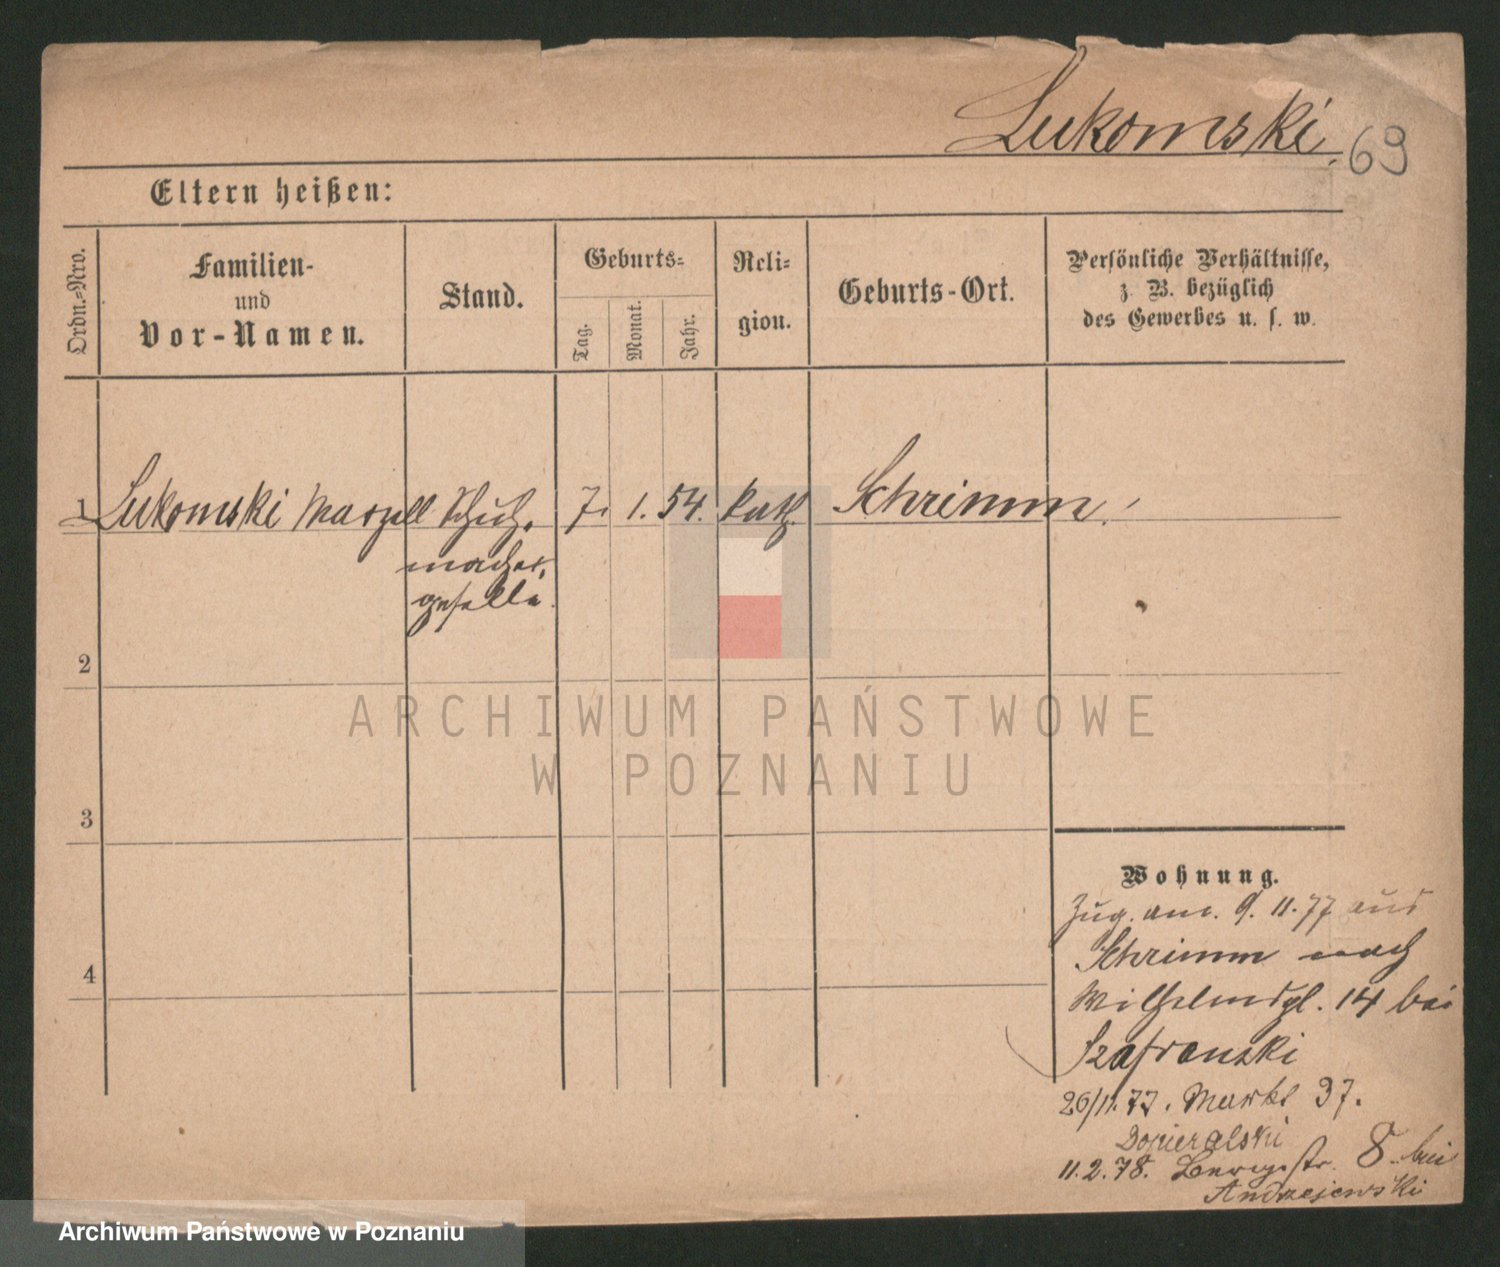 Lukomski
69
Eltern heißen:
Ordn.-Nro.
Familien-
und
Vor-Namen.
Stand.
Geburts-
Tag.
Monat.
Jahr.
Reli-
gion.
Geburts-Ort.
Persönliche Verhältnisse,
z. B. bezüglich
des Gewerbes u. s. w.
1 Lukomski Marzell Schuh- 7. 1. 54. kath. Schrimm.
macher,
geselle.
2
ARCHIWUM PAŃSTWOWE
W POZNANIU
3
Wohnung.
Zug. am. 9. 11. 77 aus
Schrimm nach
4
Wilhelmspl. 14 bei
Szafranski
26/11. 77. Markt 37.
Dopieralski
11. 2. 78. 8. bei
Andrzejewski
Archiwum Państwowe w Poznaniu